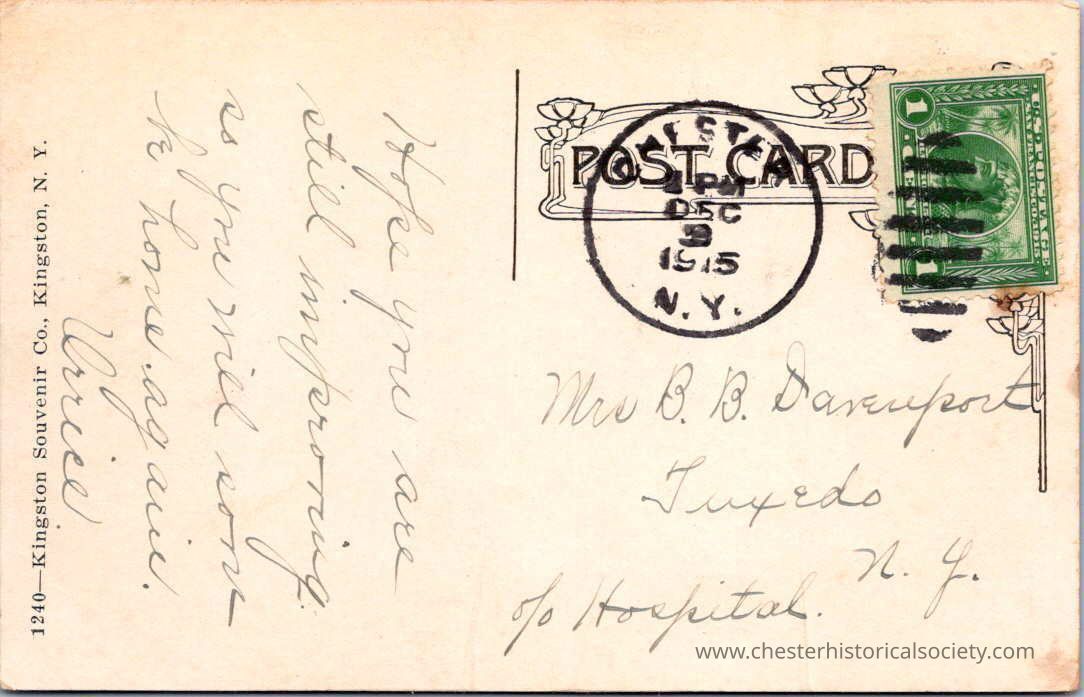 Hope you are
still improving.
so you will soon
be home again.
1240—Kingston Souvenir Co., Kingston, N. Y.
POST CARD
CHESTER
PM
DEC
1915
N.Y.
U.S. POSTAGE
1
1
Mrs B. B. Davenport
Tuxedo
N. Y.
c/o Hospital.
www.chesterhistoricalsociety.com